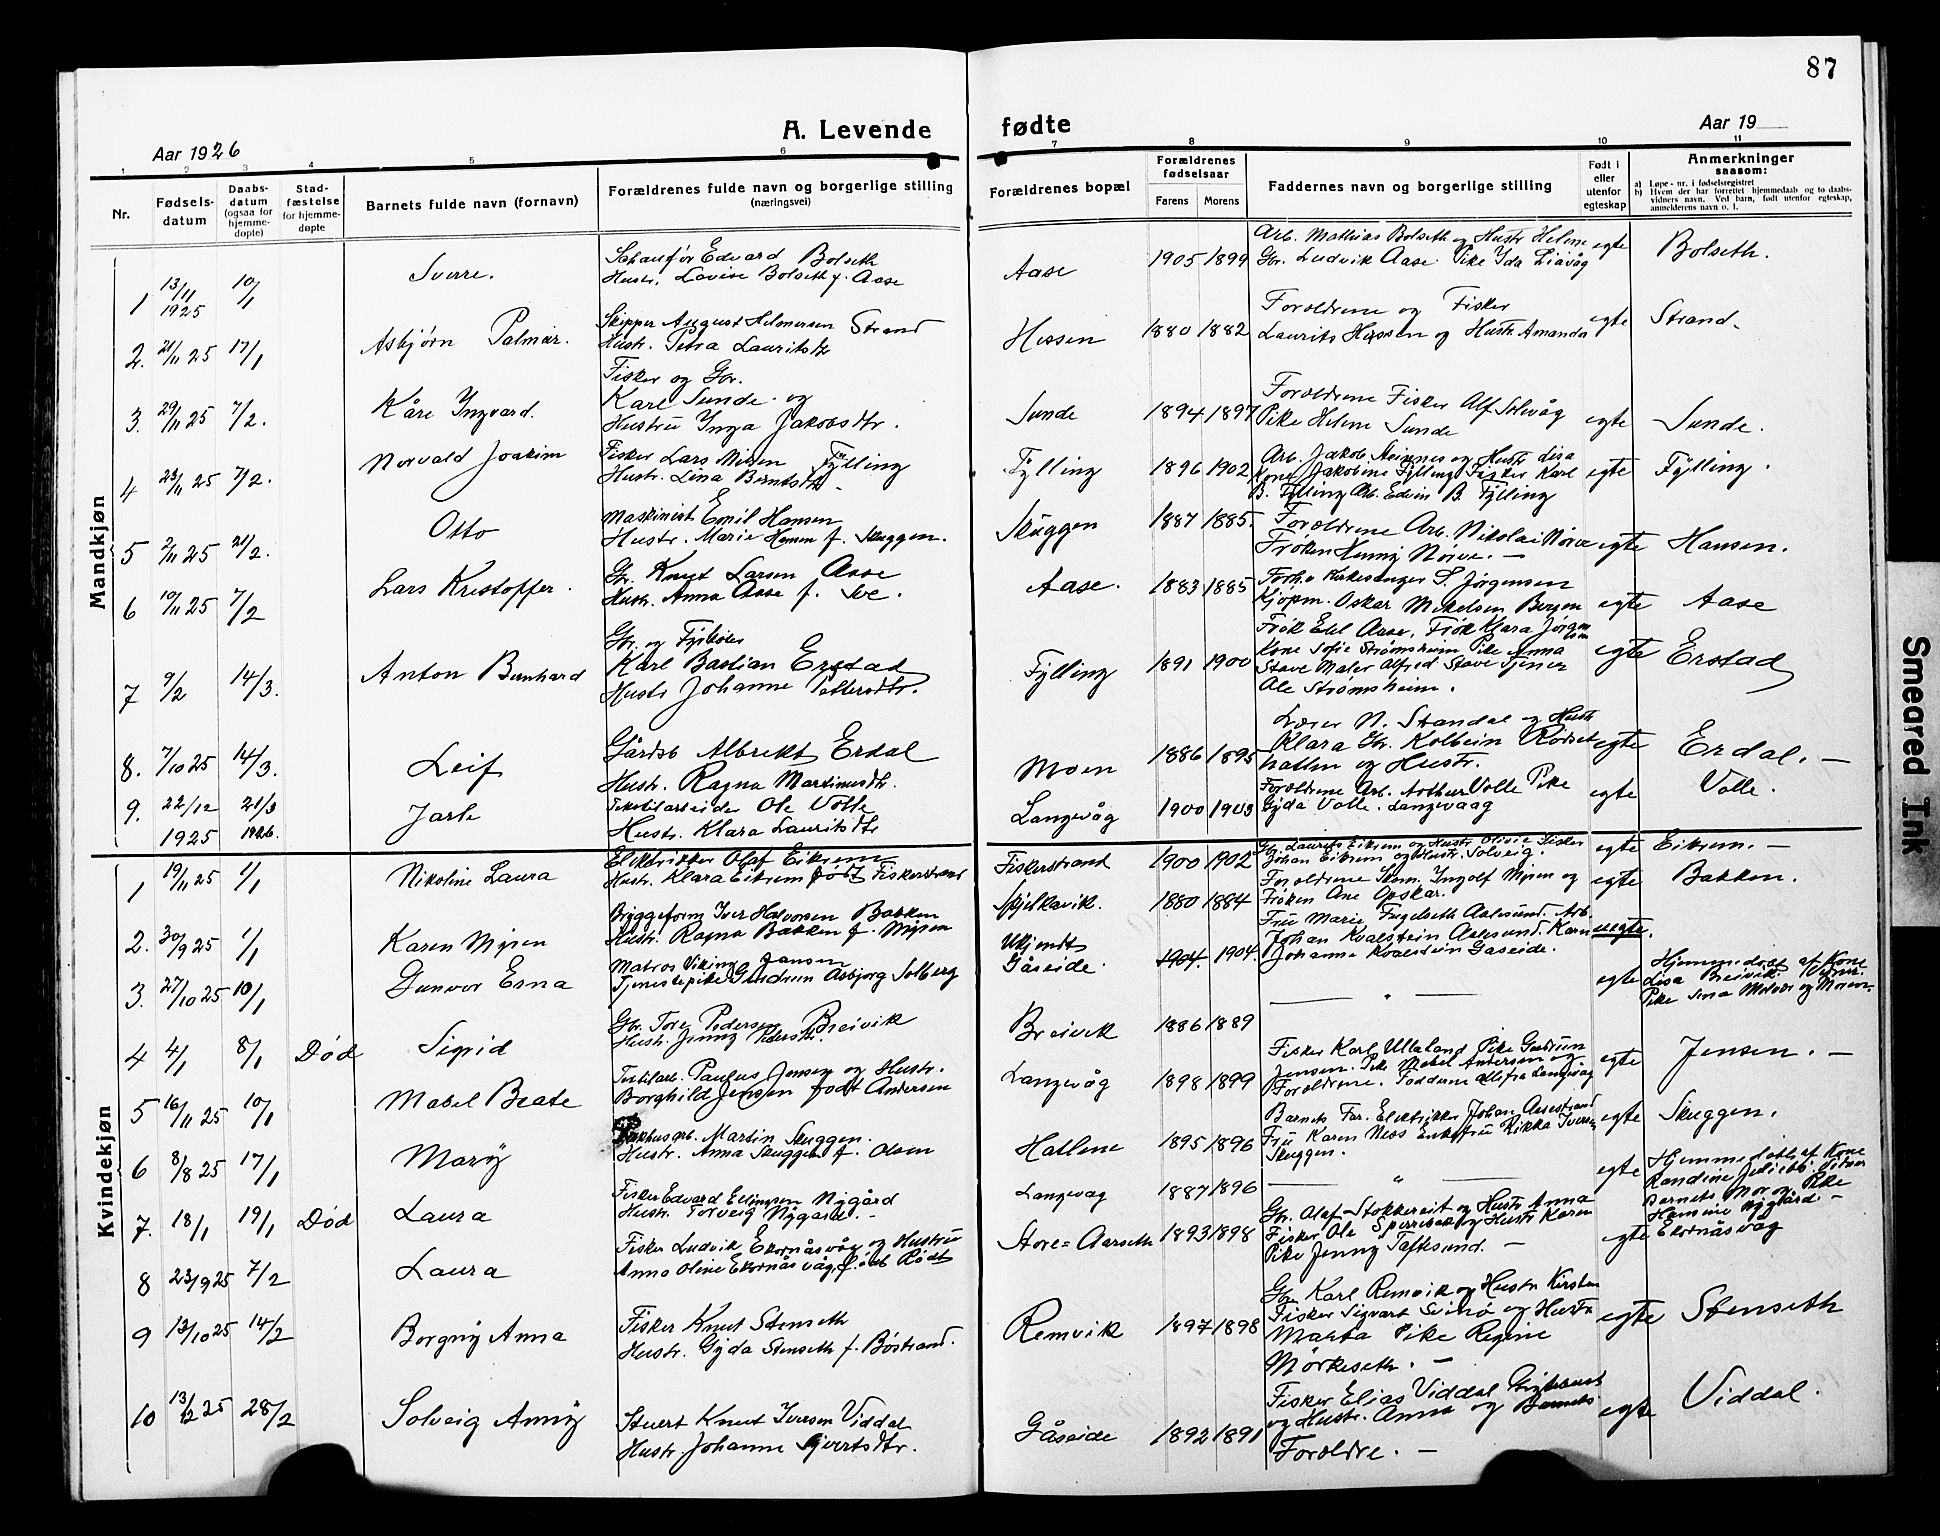 87
A. Levende fødte
Aar 1926
Aar 19
1 2 3 4 5 6 7 8 9 10 11
Nr.
Fødsels-
datum
Daabs-
datum
(ogsaa for
hjemme-
døpte)
Stad-
fæstelse
for hjemme-
døpte
Barnets fulde navn (fornavn)
Forældrenes fulde navn og borgerlige stilling
(næringsvei)
Forældrenes bopæl
Forældrenes
fødselsaar
Farens
Morens
Faddernes navn og borgerlige stilling
Født i
eller
utenfor
egteskap
Anmerkninger
saasom:
a) Løpe-nr. i fødselsregistret
b) Hvem der har forrettet hjemmedaab og to daabs-
vidners navn. Ved barn, født utenfor egteskap,
anmelderens navn o. l.
Mandkjøn
1 13/11 1925 10/1
Sverre.
Edvard Bolseth
Hustr. Lovise Bolseth f. Aase
Aase
1905 1899
Arb. Mathias Bolseth og Hustr Helene
Gbr. Ludvik Aase. Pike Ida Liavåg
egte
Bolseth.
2. 21/11 25 17/1
Asbjørn Palmar.
Skipper August Helmersen Strand
Hustr. Petra Lauritsdtr
Hessen
1880 1882
Foroldrene og Fisker
Laurits Hessen og Hustr Amanda
egte
Strand.
3. 29/11 25 7/2.
Kåre Ingvard.
Fisker og Gbr.
Karl Sunde og
Hustru Inga Jakobsdtr.
Sunde
1894 1897
Foroldrene Fisker Alf Solvåg
Pike Helene Sunde
egte
Sunde.
4 23/11 25 7/2.
Norvald Joakim
Fisker Lars Nilsen Fylling
Hustr. Lina Berntsdtr
Fylling
1896 1902
Arb. Jakob Steinnes og Hustr Lisa
Kone Jakobine Fylling Fisker Karl
B. Fylling Arb. Edvin B. Fylling
egte
Fylling.
5 2/11 25 21/2.
Otto
Maskinist Emil Hansen
Hustr. Marie Hansen f. Skuggen.
Skuggen
1887 1885.
Foroldrene Arb. Nikolai Nørve
Frøken Henny Nørve. —
egte
Hansen.
6 10/11 25 7/2
Lars Kristoffer.
Gbr. Knut Larsen Aase
Hustr. Anna Aase f. Sve.
Aase.
1883 1885
Kirkesanger S. Jørgensen
Kjøpm. Oskar Mikelsen Bergen
Frøk Edel Aase. Frøk Klara Jørgensen
egte
Aase
7 9/2 14/3.
Anton Bernhard
Gbr. og
Karl Bastian Erstad
Hustr Johanne Pettersdtr.
Fylling
1891 1900
Kone Sofie Strømsheim Pike Anna
Stave Maler Alfred Stave Tjener
Ole Strømsheim.
egte
Erstad
8. 7/10 25 14/3.
Leif
Gårdsb Albrekt Erdal
Hustr. Ragna Martinusdtr.
Moen
1886 1895
Lærer N. Standal og Hustr
Klara Gbr. Kolbein Rødset
hatlen og Hustr.
egte
Erdal. —
9. 22/12 1925 21/3 1926.
Jarle
Tekstilarbeider Ole Volle
Hustr. Klara Lauritsdtr
Langevåg
1900 1903
Foroldrene Arb. Arthur Volle Pike
Gyda Volle. Langevaag
egte
Volle.
Kvindekjøn
1 19/11 25 1/1
Nikoline Laura
Elektrikker Olaf Eikrem
Hustr. Klara Eikrem født Fiskerstrand
Fiskerstrand
1900 1902
Gbr. Laurits Eikrem og Hustr Olivie Fisker
Johan Eikrem og Hustr. Solveig.
egte
Eikrem. —
2. 30/9 25 1/1
Karen Myren
Byggeform Iver Halvorsen Bakken
Hustr. Ragna Bakken f. Myren
Spjelkavik.
1880 1884
Foroldrene Skom. Ingolf Myren og
Frøken Ane Opskar.
egte
Bakken.
3. 27/10 25 10/1
Gunvor Erna
Matros Viking Jansen
Tjenestepike Gudrun Asbjørg Solberg
Ukjendt
Gåseide.
1904. 1904.
Fru Marie Fugelseth Aalesund. Arb.
Johan Kvalstein Aalesund. Karn
Johanne Kvalstein Gaseide.
uegte.
4 4/1 8/1 Død
Sigrid
Gbr. Tore Pedersen Breivik
Hustr. Jenny Pedersdtr.
Breivik
1886 1889
— " —
egte
Hjemmedøbt af Kone
Lisa Breivik. Vidner
Pike Sina Molvær og Moren.
5 16/11 25 10/1
Mabel Beate
Textilarb. Paulus Jensen og Hustr.
Borghild Jensen født Andersen
Langevåg
1898 1899
Fisker Karl Ulleland Pike Gudrun
Jensen. Pike Mabel Andersen og
Foroldrene. Fadderne alle fra Langevåg
egte
Jensen. —
6 8/8 25 17/1
Mary
Pakhusarb. Martin Skuggen.
Hustr. Anna Skuggen f. Olsen
Hatlene
1895 1896
Barnets Far. Elektrikker Johan Aasestrand
Fru Karen Ness Enkefru Rikka Iversen
Skuggen.
egte
Skuggen.
7. 18/1 19/1 Død
Laura
Fisker Edvard Ellingsen Nygård
Hustr. Torveig Nygård. —
Langevag
1887 1896
— " —
egte
Hjemmedøbt af Kone
Randine Vidner
Barnets Mor og Pike
Hansine Nygård. —
8 23/9 25 7/2
Laura
Fisker Ludvik Ekornåsvåg og Hustru
Anna Oline Ekornåsvåg født Rødt
Store-Aarseth
1893 1898
Gbr. Olaf Stokkereit og Hustr Anna
Fisker Ole Sperrebak og Hustr Karen
Pike Jenny Tafksund. —
egte
Ekornåsvåg
9 13/10 25 14/2
Borgny Anna
Fisker Knut Stenseth
Hustr. Gyda Stenseth f. Bøstrand.
Remvik
1897 1898
Gbr Karl Remvik og Hustr Kirsten
Fisker Sigvart Svinø og Hustr
Marta Pike Regine
Mørkeseth. —
egte
Stenseth
10 13/12 25 28/2
Solveig Anny
Stuert Knut Iversen Viddal
Hustr. Johanne Sjvertsdtr.
Gåseide
1892 1891
Fisker Elias Viddal
og Hustr. Anna og Barnets
Foroldre. —
egte
Viddal.
Smeared Ink